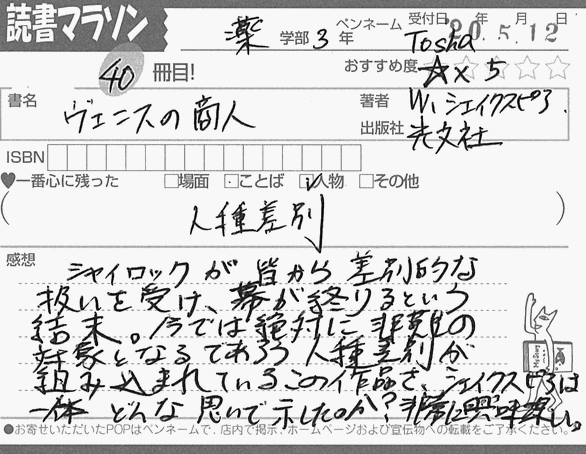 読書マラソン
薬 学部 3 年
ペンネーム Tosha
受付日 '20年5.月12日
40 冊目!
おすすめ度 ☆×5 ☆☆☆☆
書名 ヴェニスの商人
著者 W. シェイクスピア.
出版社 光文社
ISBN
♥一番心に残った □場面 □ことば ☑人物 □その他
( 人種差別 )
感想
シャイロックが皆から差別的な
扱いを受け、幕が終りるという
結末。今では絶対に非難の
対象となるであろう人種差別が
組み込まれているこの作品を、シェイクスピアは
一体どんな思いで示したのか?非常に興味深い。
●お寄せいただいたPOPはペンネームで、店内で掲示、ホームページおよび宣伝物への転載をご了承ください。